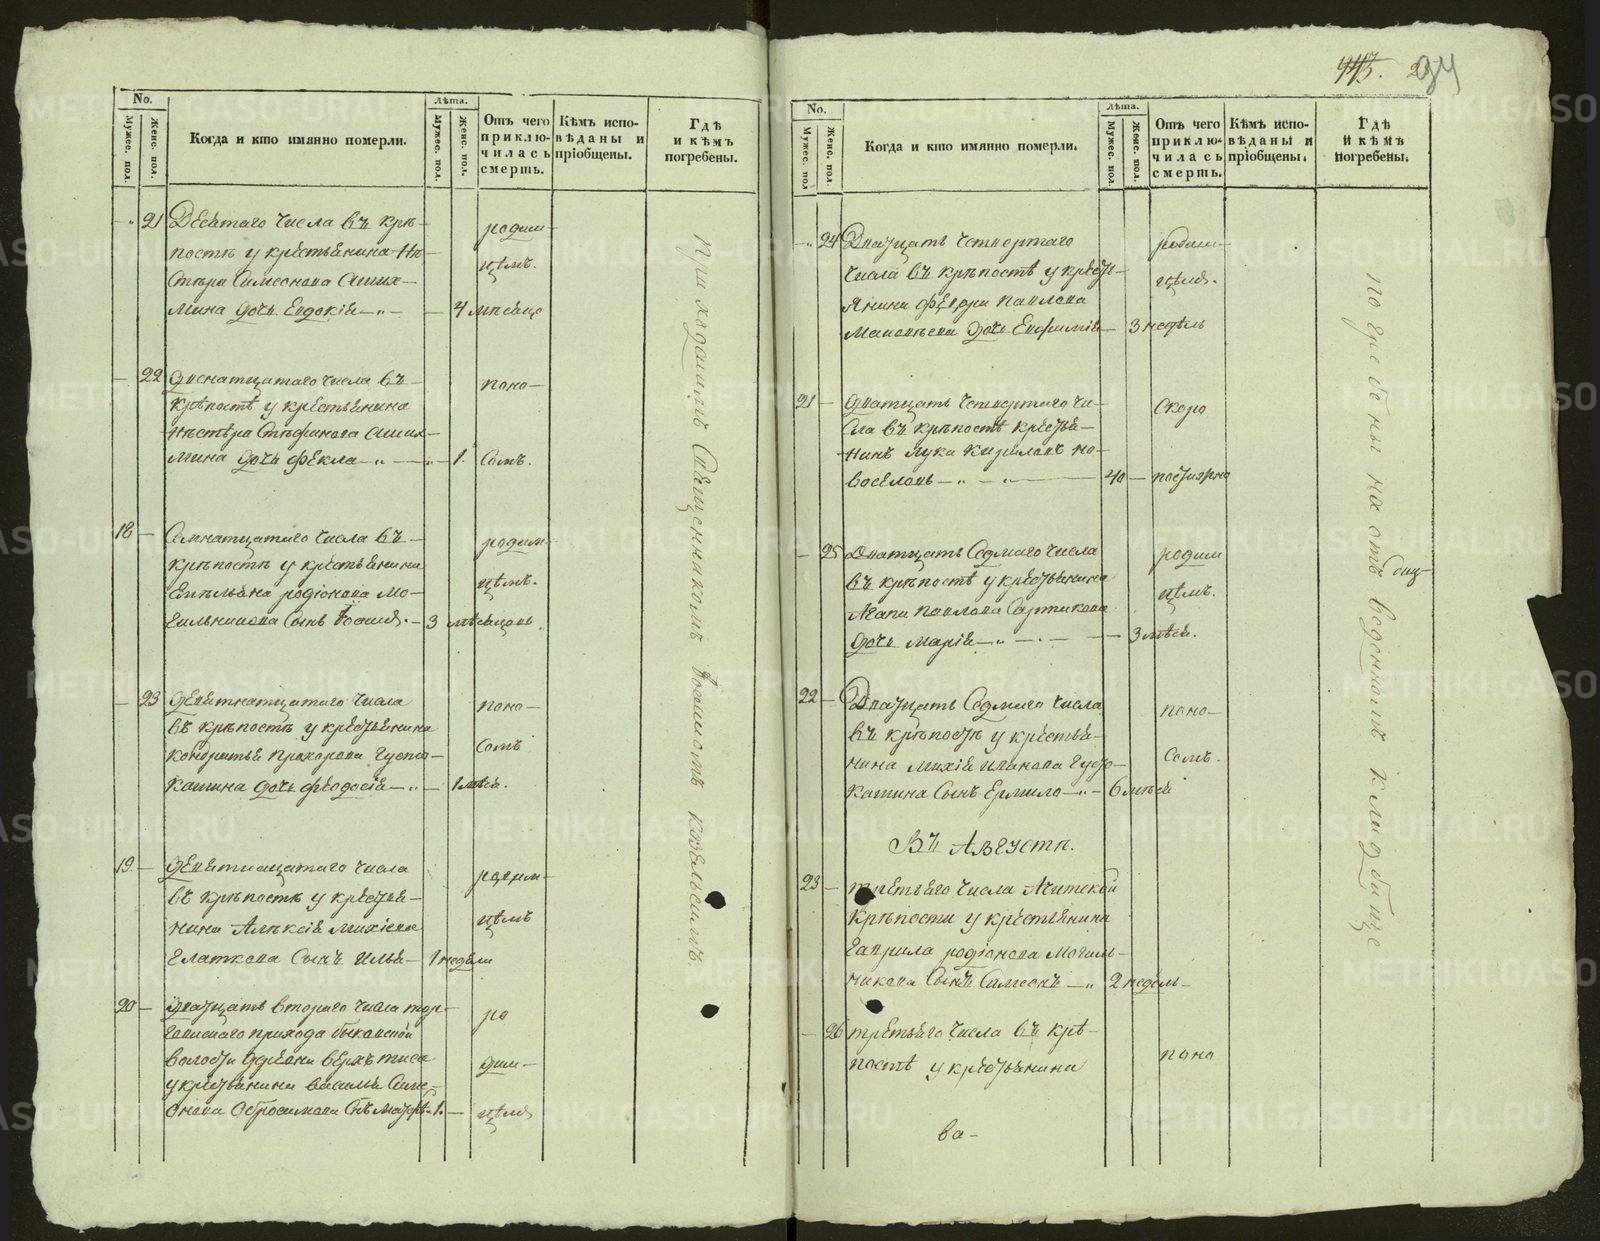 No.
Мужес. пол.
Женс. пол.
Когда и кто имянно померли.
Лѣта.
Мужес. пол.
Женс. пол.
Отъ чего приклю-
чилась смерть.
Кѣмъ испо-
вѣданы и
пріобщены.
Гдѣ
и кѣмъ
погребены.
21 Десятаго числа въ крѣ-
пости у крестьянина Не-
стера Симеонова
дочь Евдокія 4 мѣсяцо
родим-
цѣмъ.
22 числа въ
крѣпостѣ у крестьянина
Нестера Стефанова
мина дочь Фекла 1.
поно-
сомъ.
18 Семнатцатаго числа въ
крѣпостѣ у крестьянина
Емельяна Родіонова Мо-
гильникова сынъ 3 мѣсяцовъ.
родим-
цѣмъ.
23 Девятнатцатаго числа
въ крѣпостѣ у крестьянина
Кондратья Прохорова Густо-
кашина дочь Феодосія 1 мѣся.
поно-
сомъ
19 Девятнацатаго числа
въ крѣпостѣ у крестья-
нина Алексія Михіева
Глаткова сынъ Илья 1 недели
родим-
цѣмъ
20 Двадцать втораго числа тор-
говискаго прихода быковской
волости деревни верхъ тиса
у крестьянина Василья Симе-
онова сынъ 1.
ро
дим-
цѣмъ
приходскимъ священникомъ
No.
Мужес. пол
Женс. пол.
Когда и кто имянно померли.
Лѣта.
Мужес. пол
Женс. пол.
Отъ чего приклю-
чилась смерть.
Кѣмъ испо-
вѣданы и
пріобщены.
Гдѣ
и кѣмъ
погребены.
24 Двадцать четвертаго
числа въ крѣпостѣ у кресть-
янина Федора Павлова
дочь Евфимія 3 недѣль
родим-
цѣмъ.
21 Двадцать четвертаго чи-
сла въ крѣпостѣ крестья-
нинъ Лука Кириловъ Но-
воселовъ 40
скоро
постижно
25 Двадцать седмаго числа
въ крѣпостѣ у крестьянина
Агапа Павлова Сартакова
дочь Марія 3 мѣся.
родим
цѣмъ.
22 Двадцать седмаго числа
въ крѣпостѣ у крестья-
нина Михія Иванова Густо-
кашина сынъ Ермило 6 мѣсяц
поно-
сомъ.
Въ Августѣ.
23 третьяго числа Ачитской
крѣпости у крестьянина
Гаврила Родіонова Могиль-
никова сынъ Симеонъ 2 недель-
26 третьяго числа въ крѣ-
постѣ у крестьянина
поно
ва-
погребены на отведенномъ кладбище